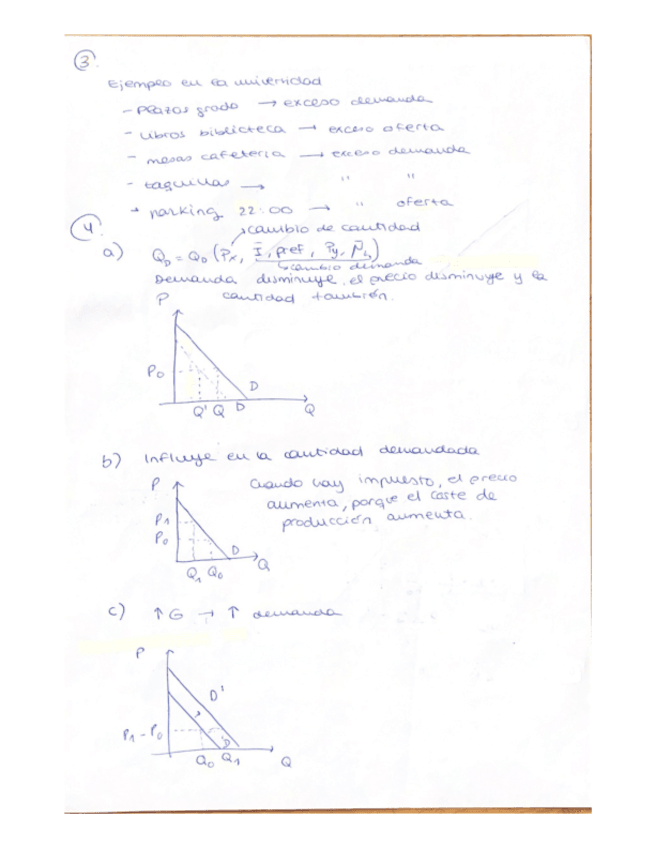 3.
Ejemplo en la universidad
- Plazas grado → exceso demanda
- Libros biblioteca → exceso oferta
- mesas cafeteria → exceso demanda
- taquillas → " "
- parking 22:00 → " oferta
4.
→ cambio de cantidad
a) Q_D = Q_D (P_x, I, pref, P_y,
→ cambio demanda
Demanda disminuye, el precio disminuye y la
cantidad también.
P
P0
D
Q' Q D Q
b) Influye en la cantidad demandada
P
Cuando hay impuesto, el precio
aumenta, porque el coste de
producción aumenta.
P1
P0
D
Q1 Q0 Q
c) ↑G → ↑ demanda
P
D'
P1 - P0
D
Q0 Q1 Q